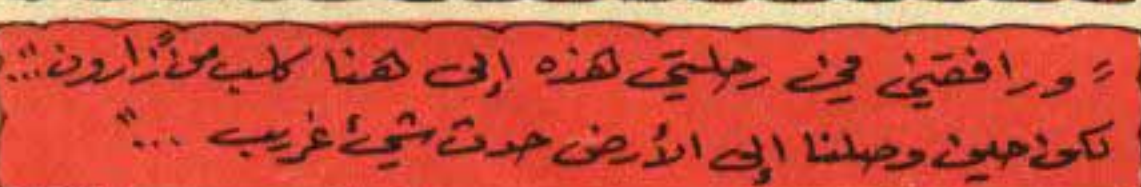 "ورافقني في رحلتي هذه إلى هنا كلب من زارون...
لكن حين وصلنا إلى الأرض حدث شيئ غريب ..."